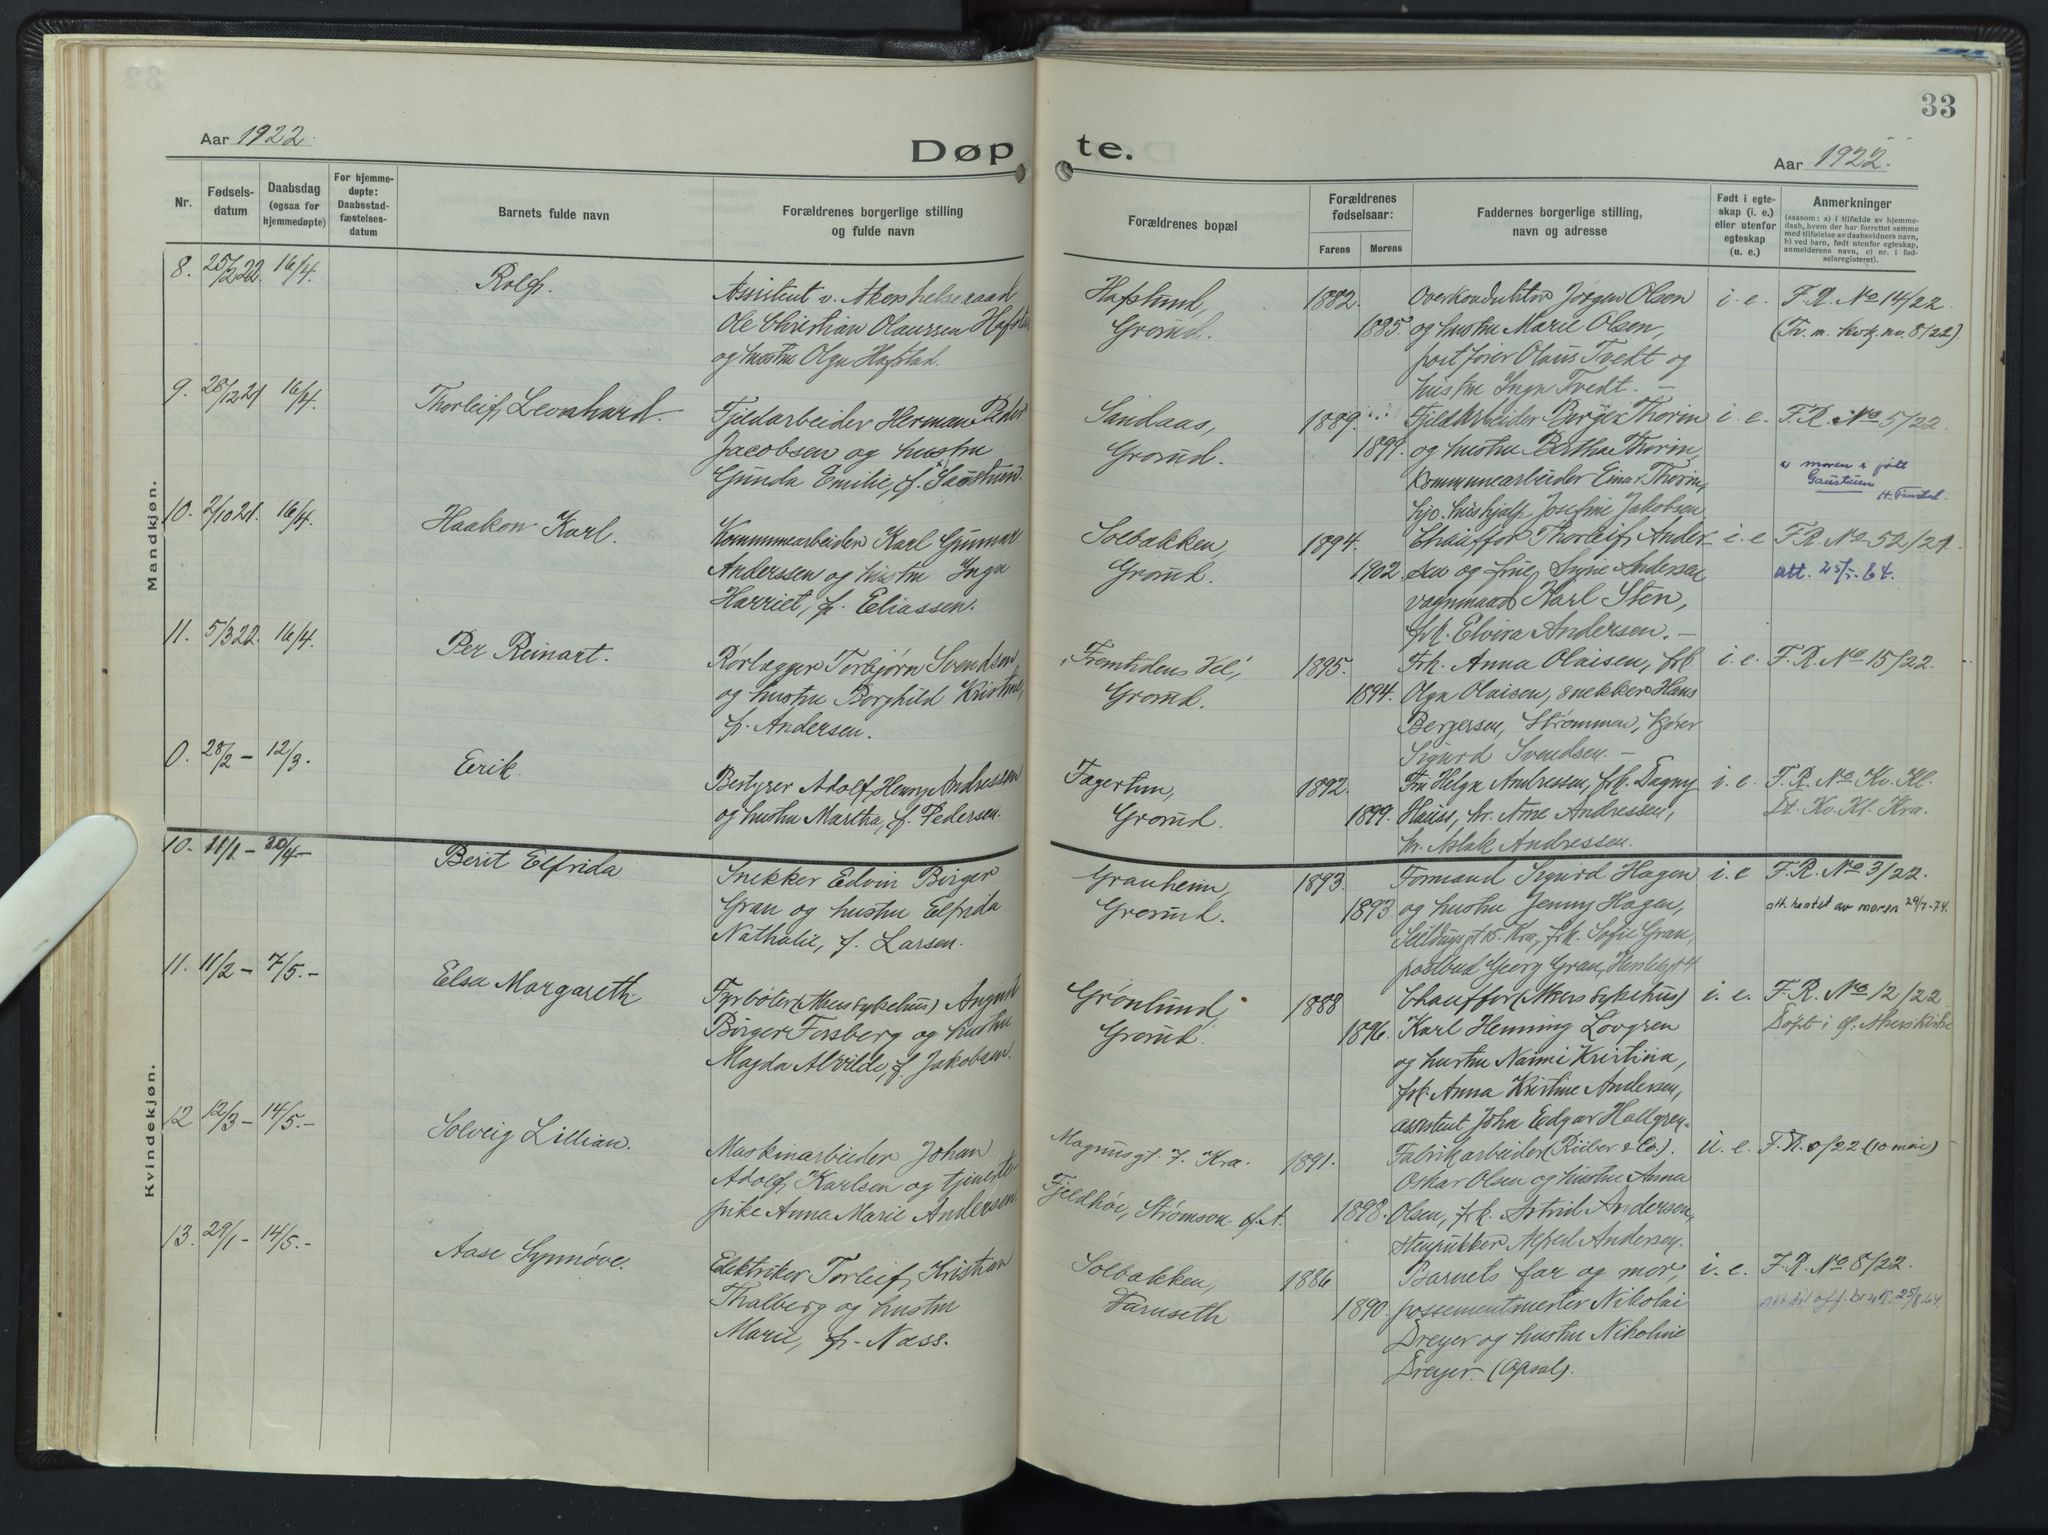 33
Aar 1922.
Døpte.
Aar 1922.
Nr.
Fødsels-
datum
Daabsdag
(ogsaa for
hjemmedøpte)
For hjemme-
døpte:
Daabsstad-
fæstelses-
datum
Barnets fulde navn
Forældrenes borgerlige stilling
og fulde navn
Forældrenes bopæl
Forældrenes
fødselsaar:
Farens
Morens
Faddernes borgerlige stilling,
navn og adresse
Født i egte-
skap (i. e.)
eller utenfor
egteskap
(u. e.)
Anmerkninger
(saasom: a) i tilfælde av hjemme-
daab, hvem der har forrettet samme
med tilføielse av daabsvidners navn,
b) ved barn, født utenfor egteskap,
anmelderens navn, c) nr. i fød-
selsregisteret).
Mandkjøn.
8. 25/2 22. 16/4.
Rolf.
Assistent v. Akers helseraad
Ole Christian Olaussen Hafstad
og hustru Olga Hafstad.
Hafslund,
Grorud.
1882.
1885.
Overkonduktør Jørgen Olsen
og hustru Marie Olsen,
postfører Olaus Tvedt og
hustru Inga Tvedt. —
i. e.
F. R. No 14/22
9. 28/12 21 16/4.
Thorleif Leonhard.
Fjeldarbeider Herman Peder
Jacobsen og hustru
Gunda Emilie, f.
Sandaas,
Grorud.
1889.
1899.
Fjeldarbeider Berger Thorin
og hustru Bertha Thorin,
Kommunearbeider Einar Thorin,
hushjælp Josefine Jakobsen
i. e.
F. R. No 5/22.
moren f. født
Gaustuen
10. 2/10 21. 16/4.
Haakon Karl.
Kommunearbeider Karl Gunnar
Anderssen og hustru Inga
Harriet, f. Eliassen.
Solbakken,
Grorud.
1894.
1902.
Chauffør Thorleif Ander-
sen og frue Signe Andersen
vognmand Karl Sten,
frk. Elvira Andersen. —
i. e
F. R. No 52/21.
att. 25/5-64.
11. 5/3 22. 16/4.
Per Reinart.
Rørlægger Torbjørn Svendsen
og hustru Borghild Kristine,
f. Andersen.
Fremtidens Vei,
Grorud.
1895.
1894.
Frk. Anna Olaisen, frk
Olga Olaisen, snekker Hans
Bergersen, Strømmen, kjører
Sigurd Svendsen. —
i. e.
F. R. No 15/22.
0. 28/2 — 12/3.
Erik.
Bestyrer Adolf Henry Andressen
og hustru Martha, f. Pedersen.
Fagertun,
Grorud.
1892.
1899.
Fru Helga Andressen, frk. Dagny
Hauss, hr. Arne Andressen,
hr. Aslak Andressen.
i. e.
F. R. No Kv. Kl.
Dt. Kv. Kl. Kra.
Kvindekjøn.
10. 11/1 — 30/4 —
Berit Elfrida
Snekker Edvin Birger
Gran og hustru Elfrida
Nathalie, f. Larsen.
Granheim,
Grorud.
1893.
1893
Formand Sigurd Hagen
og hustru Jenny Hagen,
Kra, frk. Sofie Gran,
postbud Georg Gran,
i. e
F. R. No 3/22.
att. hentet av moren 29/7-74.
11. 11/2 — 7/5. —
Elsa Margareth
Fyrbøter (Akers sykehus) August
Birger Forsberg og hustru
Magda Alvilde, f. Jakobsen.
Grønlund,
Grorud.
1888
1896.
Chauffør (Akers sykehus)
Karl Henning Lövgren
og hustru Naimi Kristina,
frk. Anna Kristine Andersen,
assistent John Edgar Hallgren.
i. e.
F. R. No 12/22
Døpt i Ø. Akers kirke
12 12/3 — 14/5. —
Solveig Lillian.
Maskinarbeider Johan
Adolf Karlsen og tjeneste-
pike Anna Marie Andersen
Magnusgt. 7. Kra.
Fjeldhøi, Strømsv. Ø. A.
1891.
1898.
Fabrikarbeider (Riiber & Co.)
Oskar Olsen og hustru Anna
Olsen, frk. Astrid Andersen,
stenpukker Alfred Andersen.
u. e.
F. R. 0/22 (10 mai)
13. 29/1 — 14/5. —
Aase Synnøve.
Elektriker Torleif Kristian
Thalberg og hustru
Marie, f. Næss.
Solbakken,
Furuseth
1886
1890.
Barnets far og mor,
possementmester Nikolai
Dreyer og hustru Nikoline
Dreyer. (Opsal).
i. e.
F. R. No 8/22.